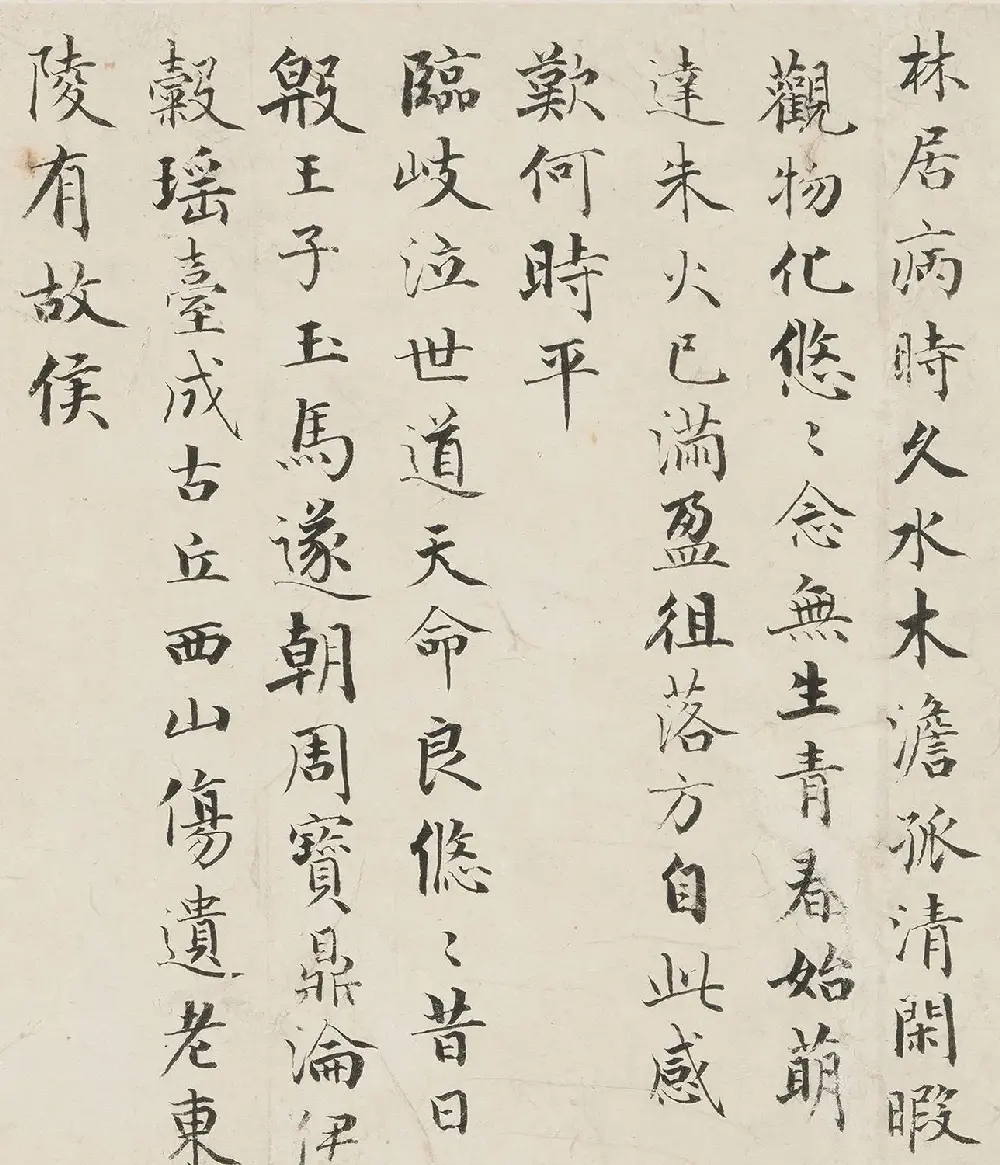 林居病時久水木澹孤清閑暇
觀物化悠〻念無生青春始萌
達朱火已滿盈徂落方自此感
歎何時平
臨岐泣世道天命良悠〻昔日
殷王子玉馬遂朝周寶鼎淪伊
糓瑶臺成古丘西山傷遺老東
陵有故侯